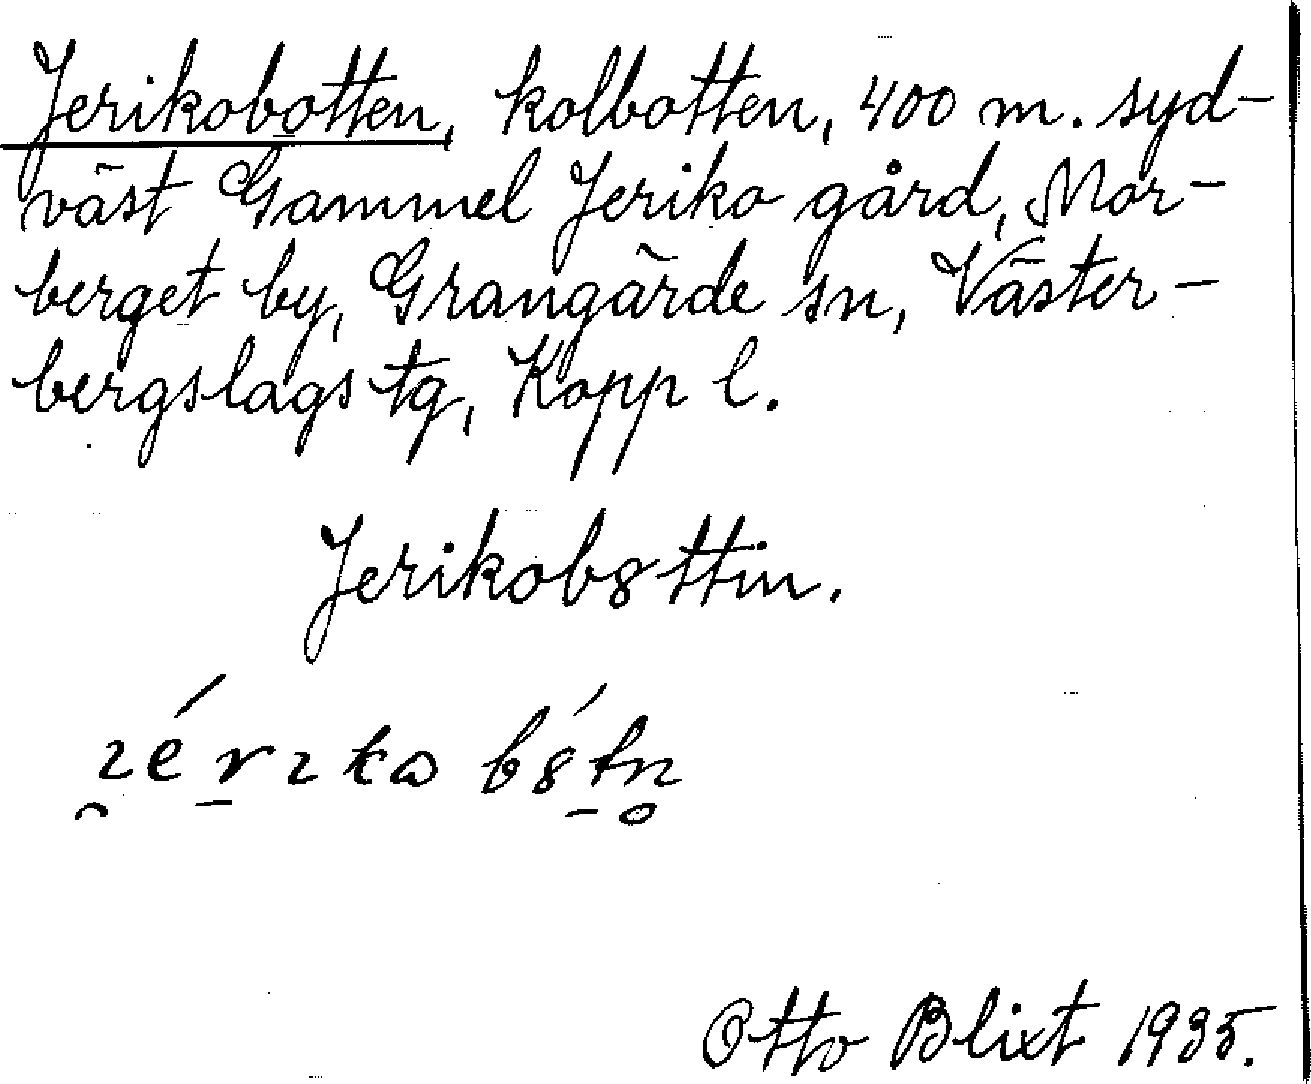 Jerikobotten, kolbotten, 400 m. syd-
väst Gammel Jeriko gård, Mor-
berget by, Grangärde sn, Väster-
bergslags tg, Kopp l.
Jerikob8ttin.
Otto Blixt 1935.